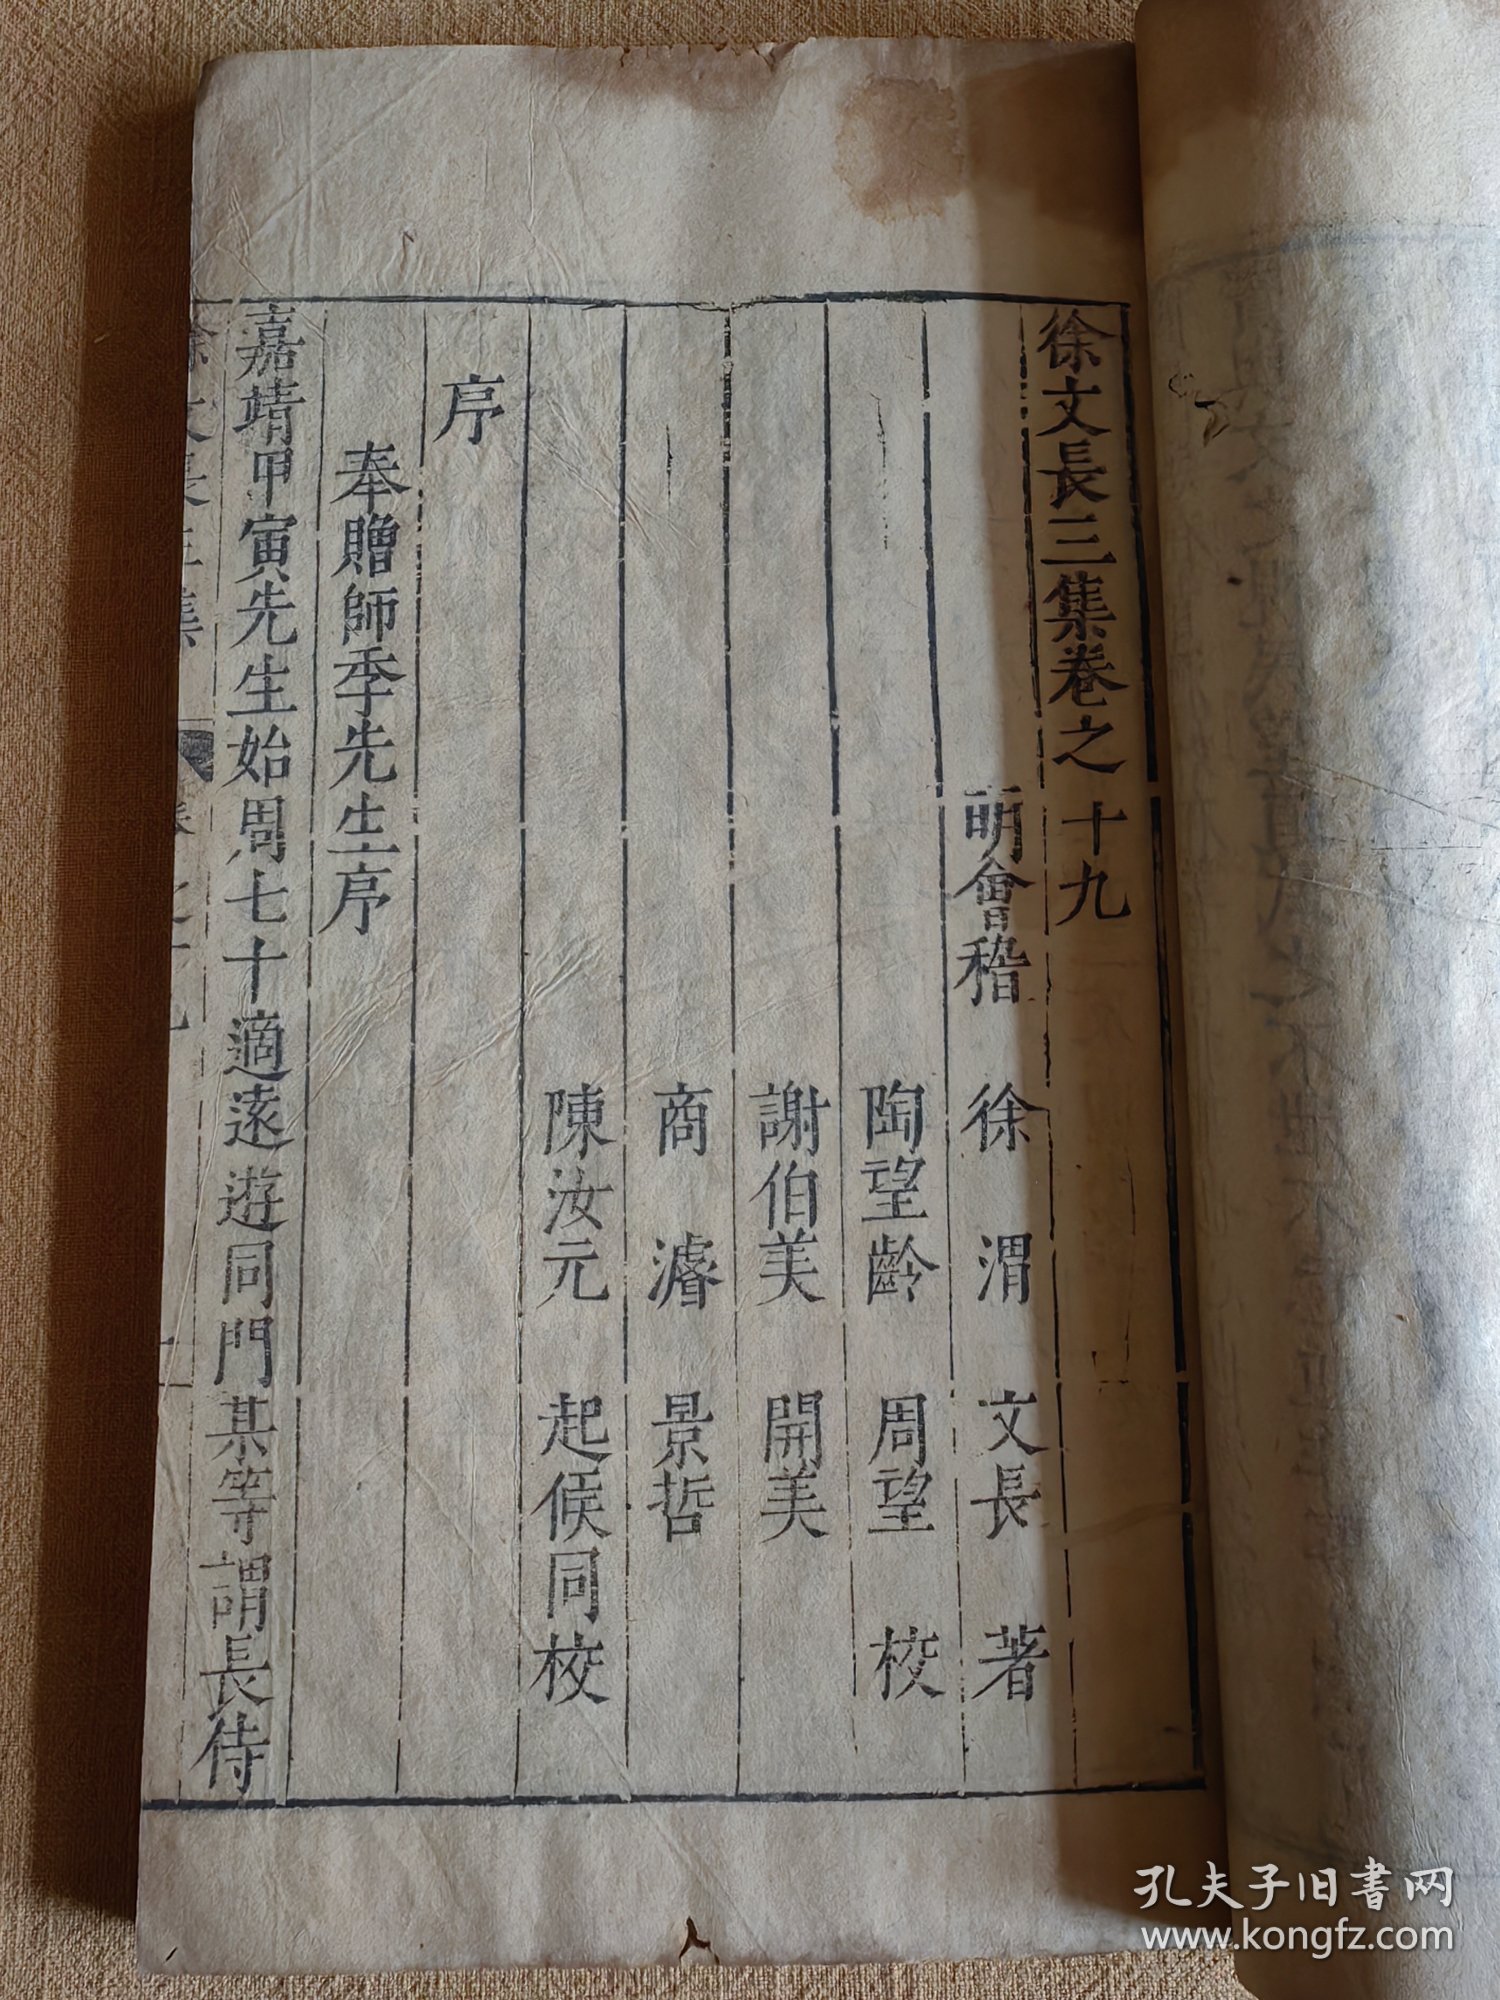 徐文長三集卷之十九
明會稽 徐渭 文長 著
陶望齡 周望 校
謝伯美 開美
商濬 景哲
陳汝元 起侯同校
序
奉贈師季先生序
嘉靖甲寅先生始周七十適遠遊同門某等謂長侍
徐文長三集 卷之十九 一
孔夫子旧書网
www.kongfz.com